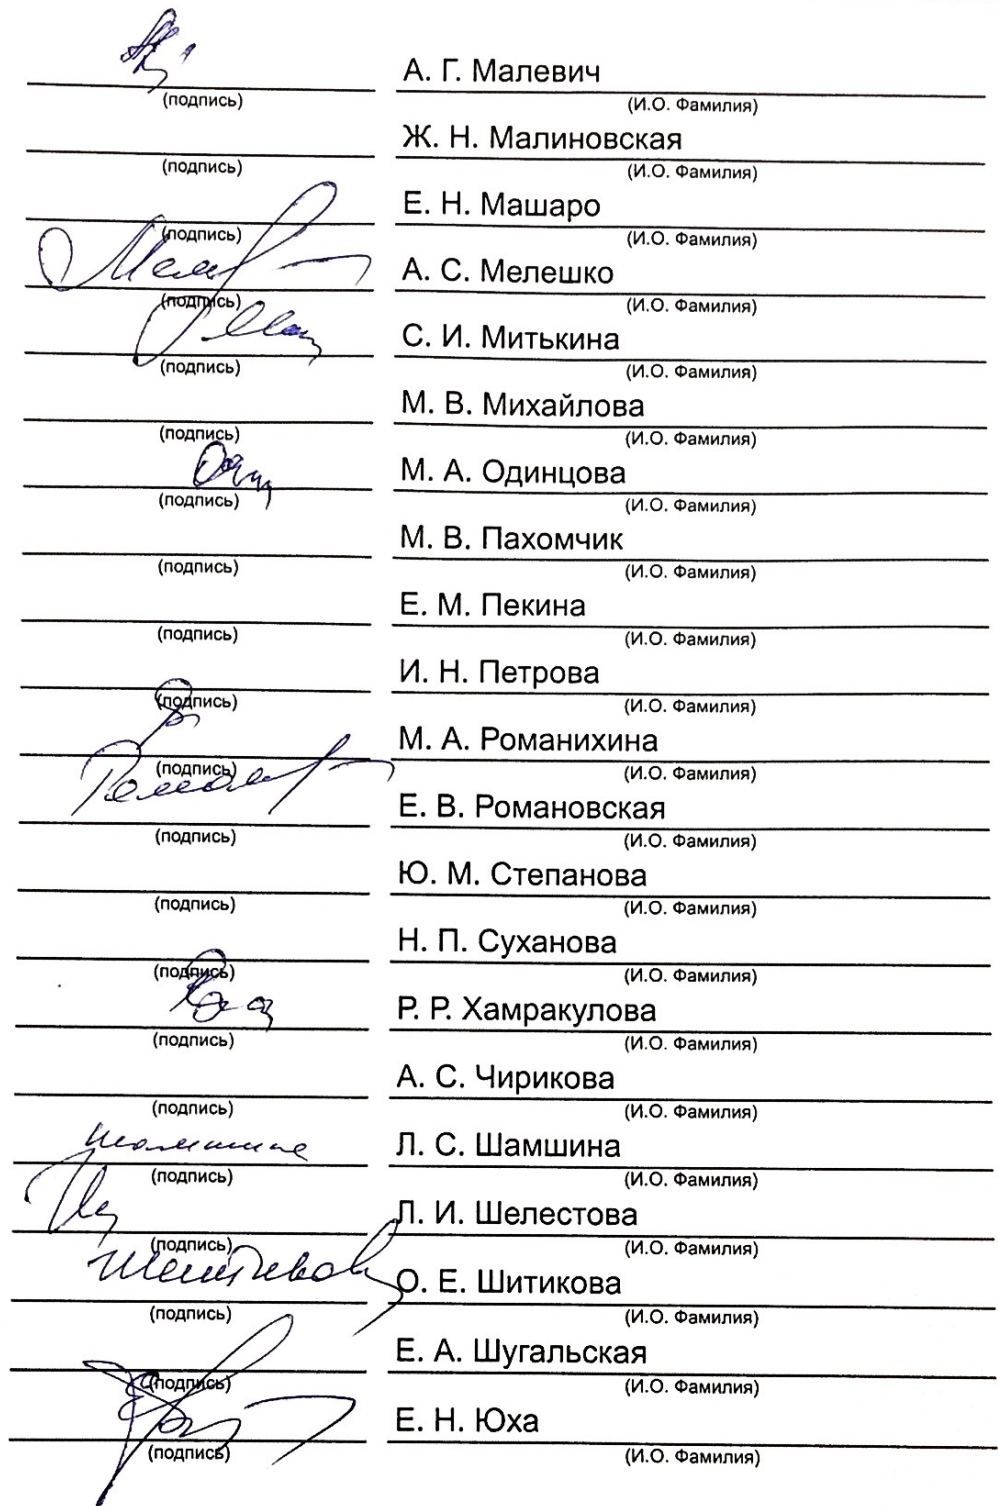 А. Г. Малевич
(подпись) (И.О. Фамилия)
Ж. Н. Малиновская
(подпись) (И.О. Фамилия)
Е. Н. Машаро
(подпись) (И.О. Фамилия)
А. С. Мелешко
(подпись) (И.О. Фамилия)
С. И. Митькина
(подпись) (И.О. Фамилия)
М. В. Михайлова
(подпись) (И.О. Фамилия)
М. А. Одинцова
(подпись) (И.О. Фамилия)
М. В. Пахомчик
(подпись) (И.О. Фамилия)
Е. М. Пекина
(подпись) (И.О. Фамилия)
И. Н. Петрова
(подпись) (И.О. Фамилия)
М. А. Романихина
(подпись) (И.О. Фамилия)
Е. В. Романовская
(подпись) (И.О. Фамилия)
Ю. М. Степанова
(подпись) (И.О. Фамилия)
Н. П. Суханова
(подпись) (И.О. Фамилия)
Р. Р. Хамракулова
(подпись) (И.О. Фамилия)
А. С. Чирикова
(подпись) (И.О. Фамилия)
Л. С. Шамшина
(подпись) (И.О. Фамилия)
Л. И. Шелестова
(подпись) (И.О. Фамилия)
О. Е. Шитикова
(подпись) (И.О. Фамилия)
Е. А. Шугальская
(подпись) (И.О. Фамилия)
Е. Н. Юха
(подпись) (И.О. Фамилия)